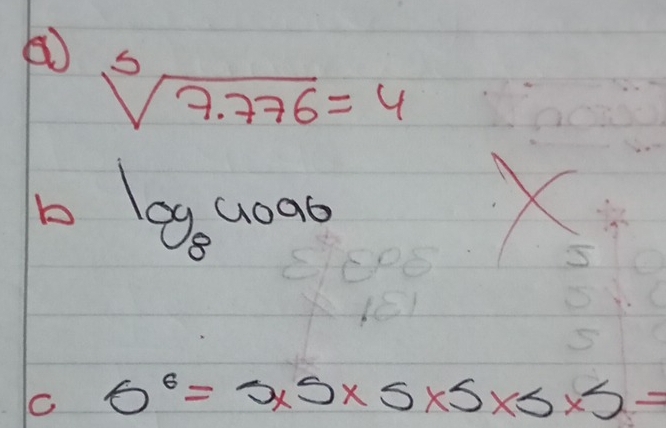 a) ⁵√7.776 = 4
b log₈ 4096
c 5⁶ = 5x5x5x5x5x5=